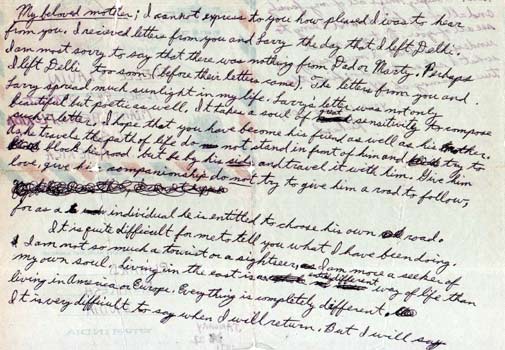 My beloved mother; I cannot express to you how pleased I was to hear
from you. I recieved letters from you and Larry the day that I left Delhi.
I am most sorry to say that there was nothing from Dad or Marty. Perhaps
I left Delhi too soon (before their letters came). The letters from you and
Larry spread much sunlight in my life. Larry's letter was not only
beautiful but poetic as well. It takes a soul of great sensitivity to compose
such a letter. I hope that you have become his friend as well as his mother.
As he travels the path of life do not stand in front of him and try to
block his road but be by his side and travel it with him. Give him
love, give him companionship do not try to give him a road to follow,
for as a individual he is entitled to choose his own road.
It is quite difficult for me to tell you what I have been doing.
I am not so much a tourist or a sighteer, I am more a seeker of
my own soul, living in the east is a different way of life than
living in America or Europe. Everything is completely different.
It is very difficult to say when I will return. But I will say
INDIA